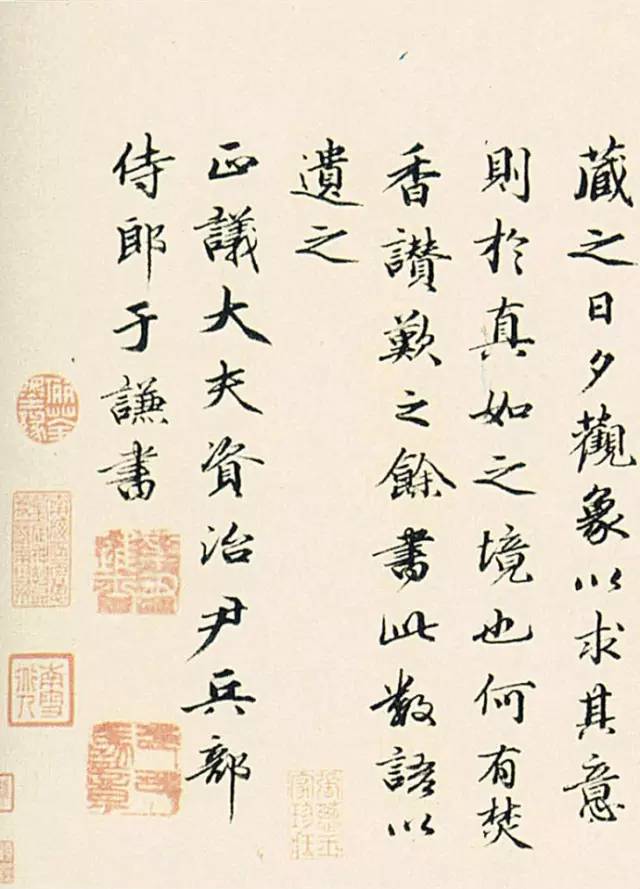 藏之日夕觀象以求其意
則於真如之境也何有焚
香讃歎之餘書此數語以
遺之
正議大夫資治尹兵部
侍郎于謙書
南雪